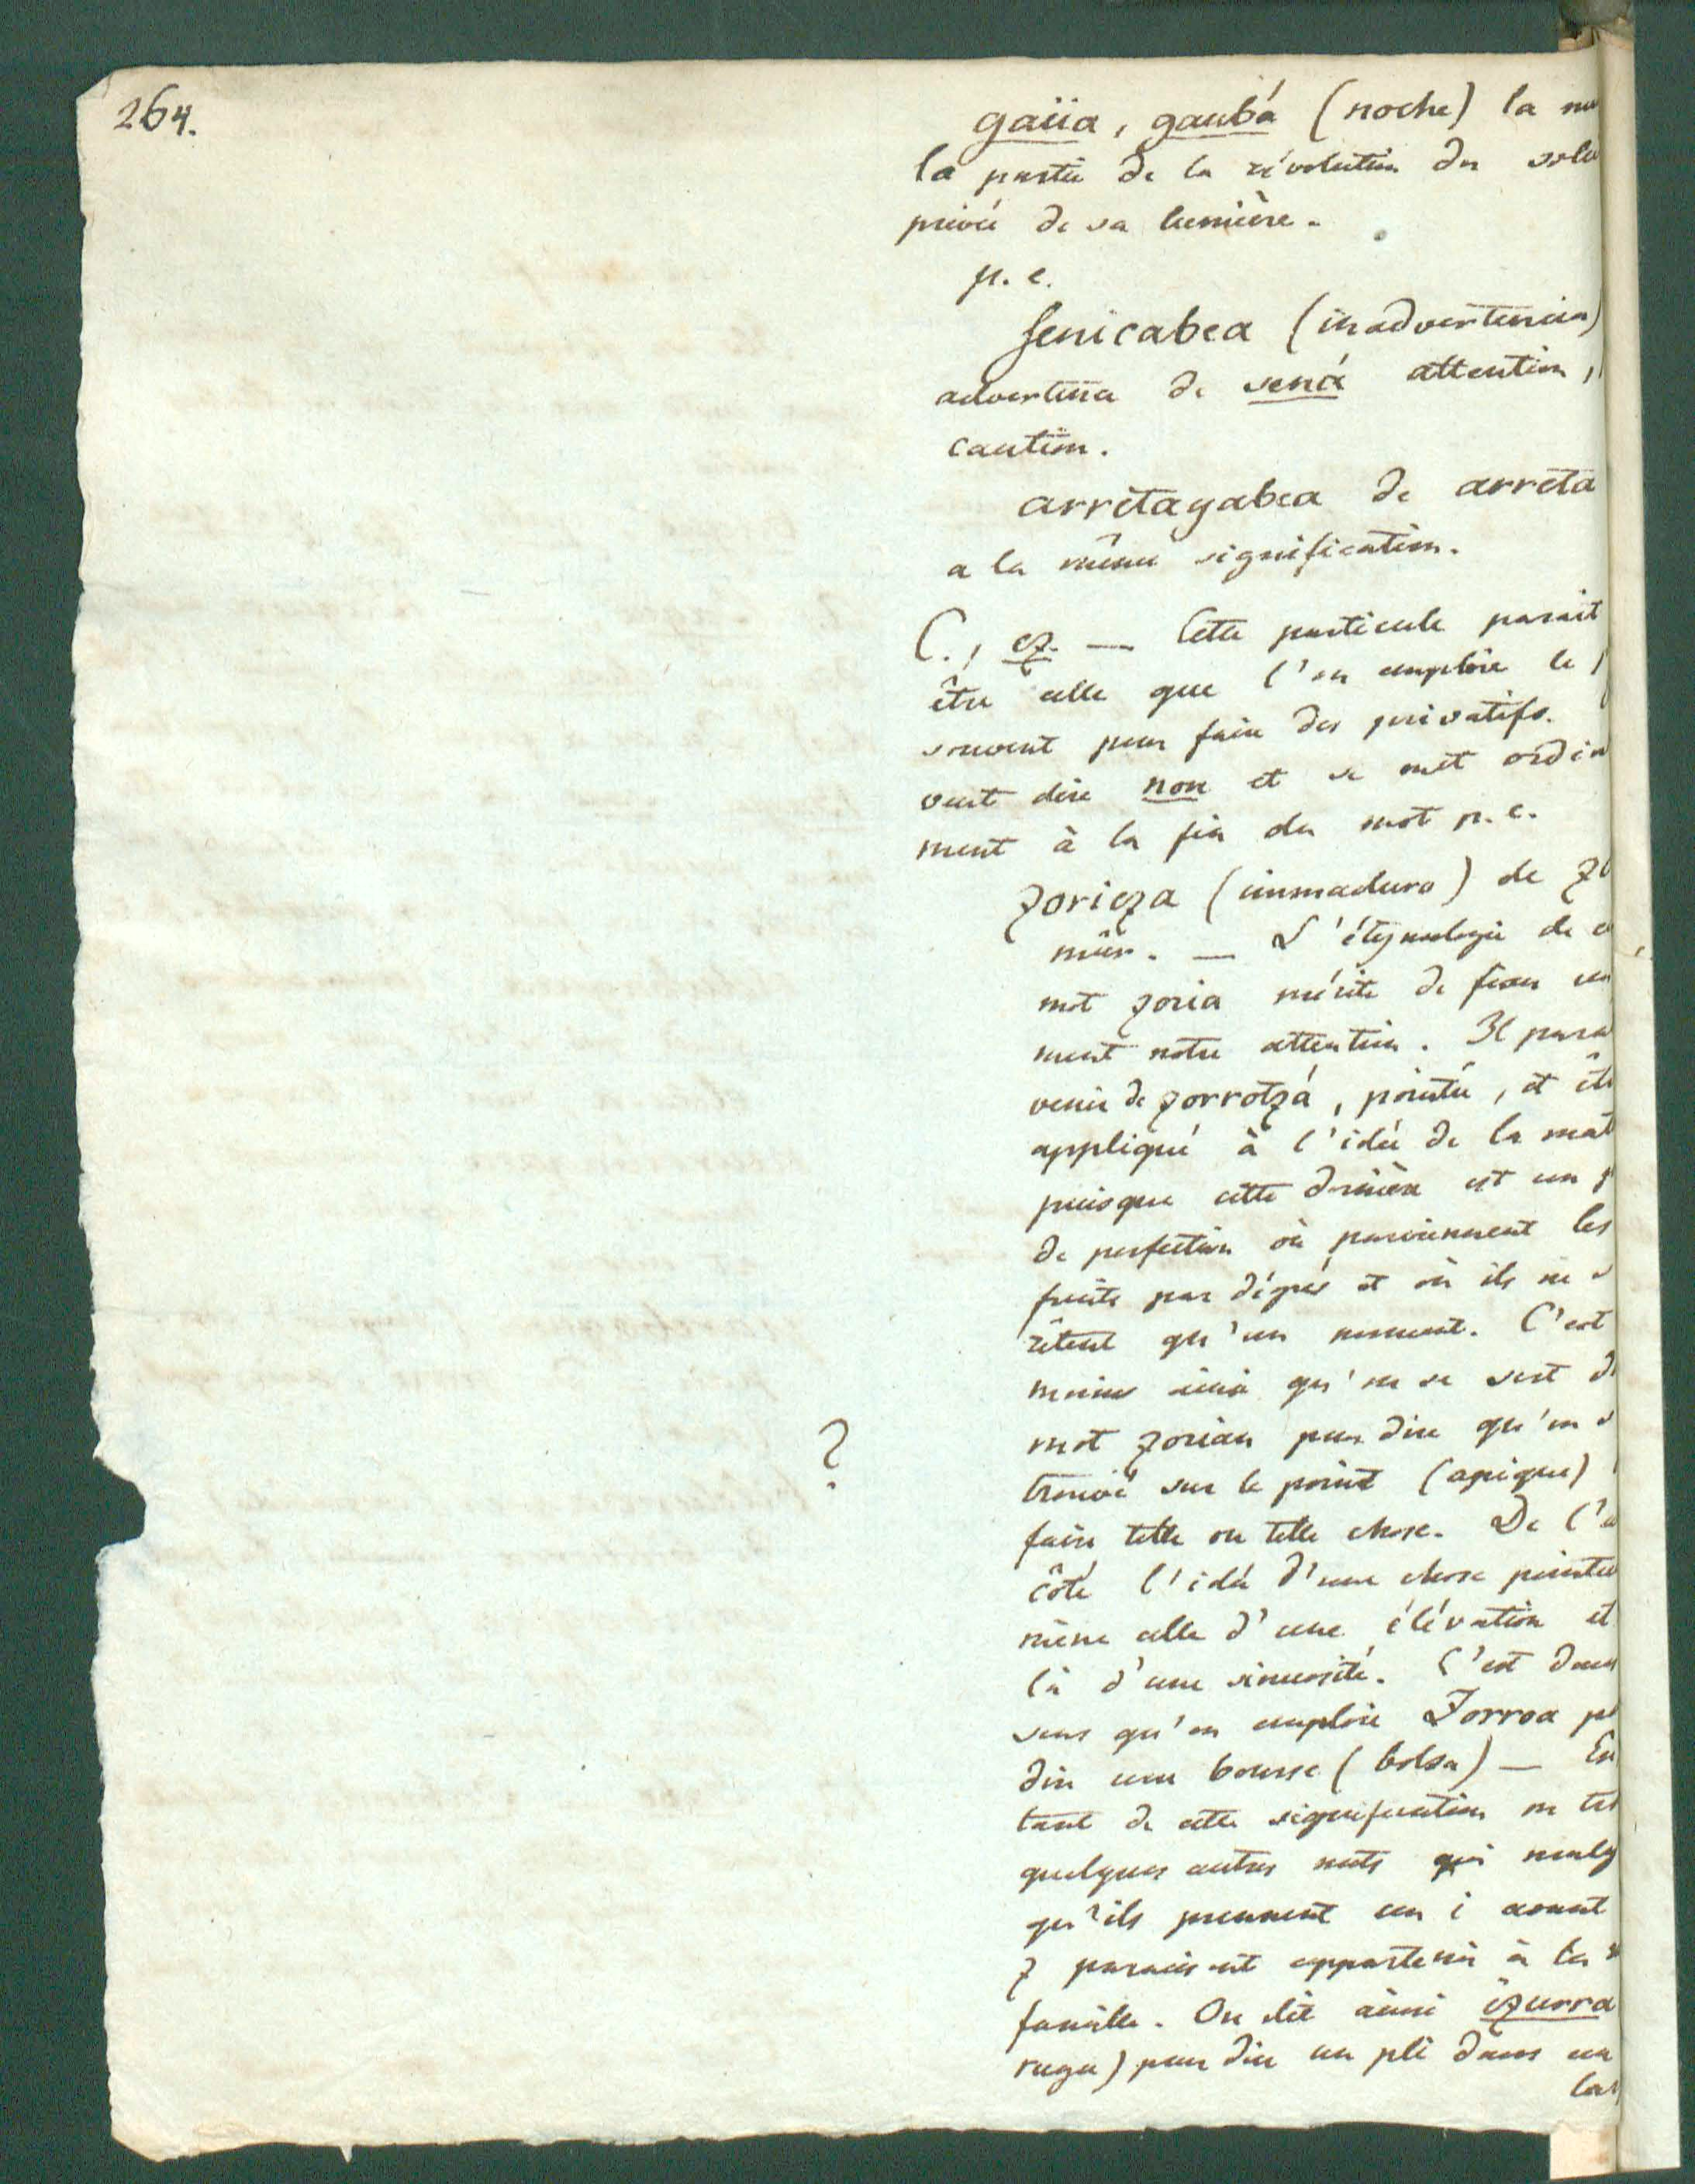 264.
gaüa, gaubá (noche) la nu
la partie de la révolution du sole
privée de sa lumière.
p. e.
Senicabea (inadvertencia)
advertena de sená attention,
caution.
arretagabea de arreta
a la même signification.
C., ez. — Cette particule parait
être celle que l'on emploie le
souvent pour faire des privatifs.
veut dire non et se met ordin
ment à la fin du mot p. e.
zorieza (inmaduro) de zo
mûr. — L'étymologie de c
mot zoria mérite de fixer un
ment notre attention. Il para
venir de zorrotzá, pointu, et êt
appliqué à l'idée de la mat
puisque cette dernière est un p
de perfection où parviennent les
fruits par dégrés et où ils ne s
rêtent qu'un moment. C'est
moins ainsi qu'on se sert d
mot zorian pour dire qu'on s
trouvé sur le point (apique)
faire telle ou telle chose. De l'a
côté l'idée d'une chose pointu
mène celle d'une élévation et
là d'une sinuosité. C'est dans
?
sens qu'on emploie Zorroa po
dire une bourse (bolsa) — En
tant de cette signification on tro
quelques autres mots qui malg
qu'ils prennent un i avant
z paraissent appartenir à la m
famille. On dit ainsi izurra
ruga) pour dire un pli dans un
la